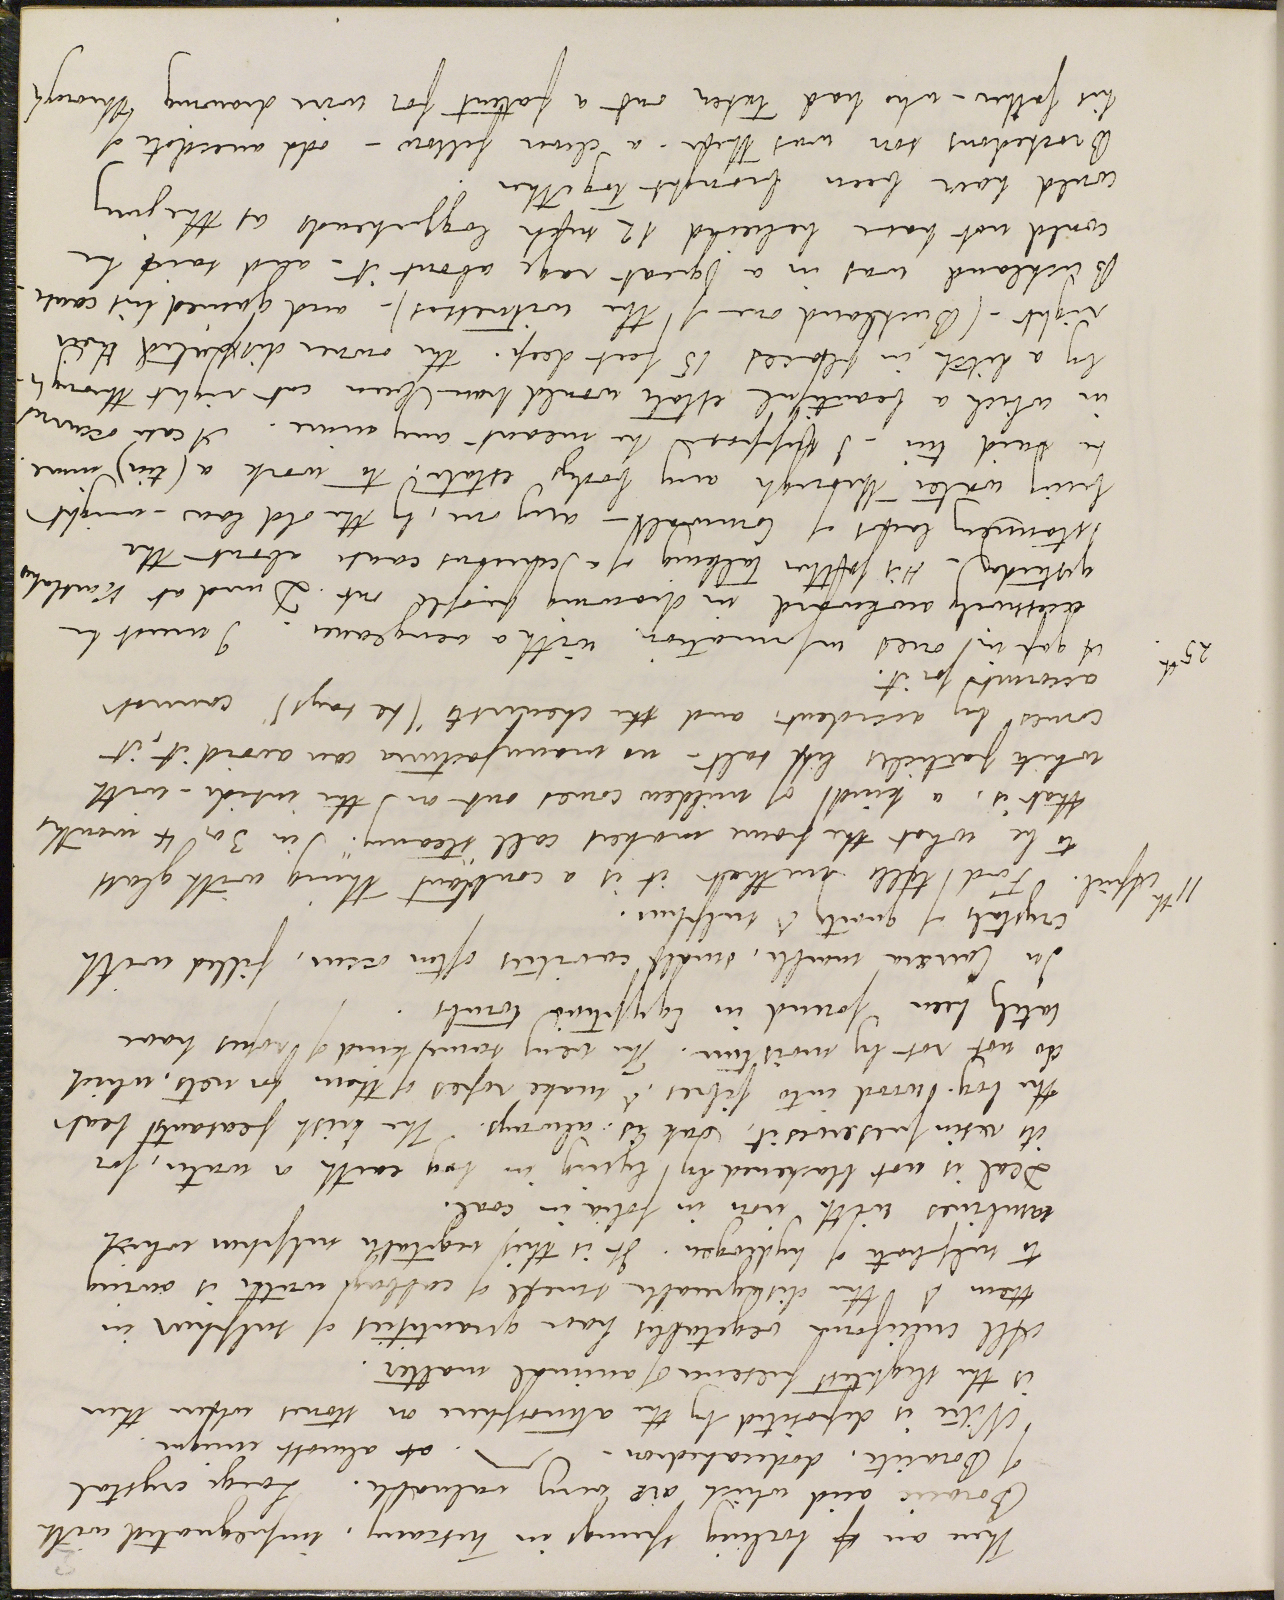 There are boiling springs in Tuscany, impregnated with
Boracic acid which are very valuable. Large crystal
of Boracite, dodecahedron - at almost unique.
Nitre is deposited by the atmosphere on stones where there
is the slightest presence of animal matter.
All cruciform vegetables have quantities of sulphur in
them & the disagreeable smell of cabbage water is owing
to sulphate of hydrogen. It is this vegetable sulphur which
combines with iron in folia in coal.
Deal is not blackened by lying in bog earth or water, for
its resin preserves it, oak is always. The Irish peasants beat
the bog-wood into fibres, & make ropes of them for nets, which
do not rot by moisture. The very same kind of ropes have
lately been found in Egyptian tombs.
In Carrera marble, small cavities often occur, filled with
crystals of quartz & sulphur.
11th April. Ford tells me that it is a constant thing with glass
to be what the frame makers call "steamy." in 3 or 4 months
that is, a kind of mildew comes out on the inside - with
white particles like salt - no manufacturer can avoid it, it
comes by accident, and the chemists (he says) cannot
account for it.
25th. A gap in ones information, with a vengeance. I must be
excessively awkward in drawing people out. Dined at
yesterday - His father talking of a curious cause about the
stannery laws of Cornwall - any one, by the old law - might
bring water through any bodys estate, to work a (tin) mine.
he said tin - I suppose he meant any mine. A case occurred
in which a beautiful estate would have been cut right through -
by a ditch in places 15 feet deep. The owner disputed their
right - (Buckland one of the witnesses) - and gained his cause -
Buckland was in a great rage about it - and said he
could not have believed 12 such loggerheads as the jury
could have been brought together.
Brockedons son was there - a clever fellow - odd anecdote of
his father - who had taken out a patent for wire drawing through